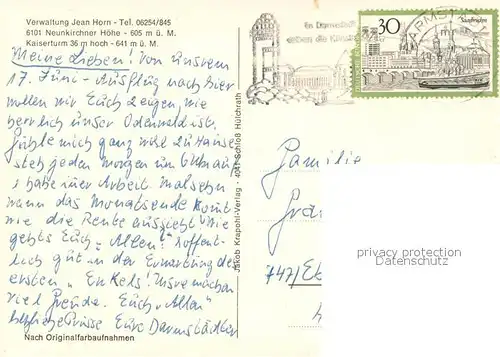 Verwaltung Jean Horn - Tel. 06254/845
6101 Neunkirchner Höhe - 605 m ü. M.
Kaiserturm 36 m hoch - 641 m ü. M.
Meine Lieben! Von unserm
17. Juni-Ausflug nach hier
wollen wir Euch zeigen, wie
herrlich unser Odenwald ist.
Fühle mich ganz wohl zu Hause
steh jeden Morgen um
habe immer Arbeit. Mal sehen
wann das Monatsende kommt
wie die Rente aussieht. Wie
gehts Euch „Allen"? Hoffent-
lich gut in der Erwartung des
ersten „Enkels! Unsre machen
viel Freude. Euch „Allen"
herzliche Grüsse Eure Darmstädter
Nach Originalfarbaufnahmen
Jakob Krapohl-Verlag - 4041 Schloß Hülchrath
In Darmstadt
leben die Künste
DARMST
30
Saarbrücken
Familie
privacy protection
www.akpool.de